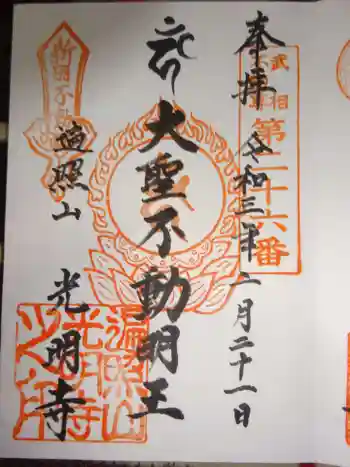 奉拝 令和三年二月二十一日
武相
第二十六番
大聖不動明王
遍照山 光明寺
新田不動
遍照山光明寺之印